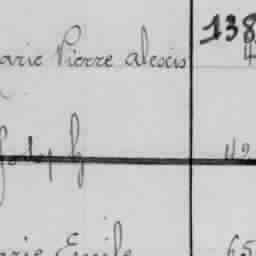 138
arie Pierre alexis 4
Joseph 42
arie Emile 65